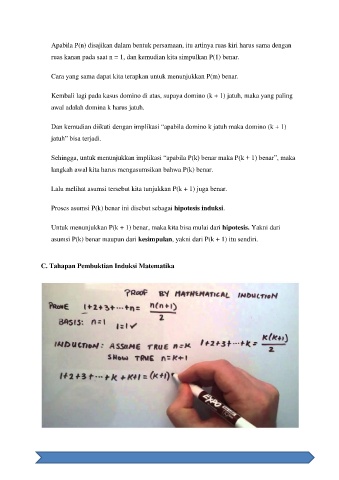 Apabila P(n) disajikan dalam bentuk persamaan, itu artinya ruas kiri harus sama dengan
ruas kanan pada saat n = 1, dan kemudian kita simpulkan P(1) benar.
Cara yang sama dapat kita terapkan untuk menunjukkan P(m) benar.
Kembali lagi pada kasus domino di atas, supaya domino (k + 1) jatuh, maka yang paling
awal adalah domina k harus jatuh.
Dan kemudian diikuti dengan implikasi “apabila domino k jatuh maka domino (k + 1)
jatuh” bisa terjadi.
Sehingga, untuk menunjukkan implikasi “apabila P(k) benar maka P(k + 1) benar”, maka
langkah awal kita harus mengasumsikan bahwa P(k) benar.
Lalu melihat asumsi tersebut kita tunjukkan P(k + 1) juga benar.
Proses asumsi P(k) benar ini disebut sebagai hipotesis induksi.
Untuk menunjukkan P(k + 1) benar, maka kita bisa mulai dari hipotesis. Yakni dari
asumsi P(k) benar maupun dari kesimpulan, yakni dari P(k + 1) itu sendiri.
C. Tahapan Pembuktian Induksi Matematika
PROOF BY MATHEMATICAL INDUCTION
PROVE 1+2+3+···+n= n(n+1)/2
BASIS: n=1 1=1✓
INDUCTION: ASSUME TRUE n=K 1+2+3+···+K = K(K+1)/2
SHOW TRUE n=K+1
1+2+3+···+K+K+1=(K+1)
EXPO